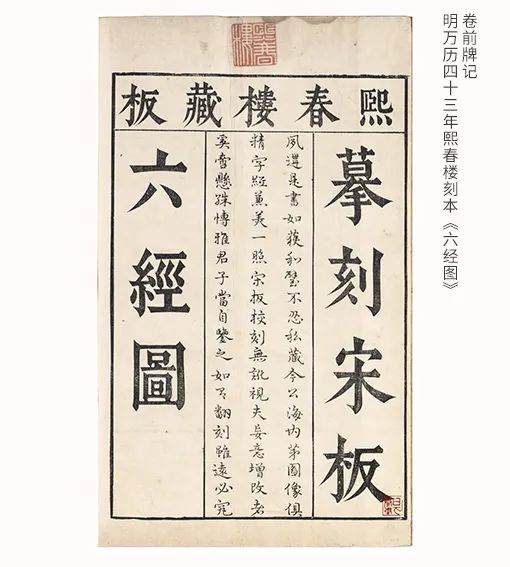 卷前牌记
明万历四十三年熙春楼刻本《六经图》
熙春樓藏板
摹刻宋板
夙遘是書如獲和璧不忍私藏今公海內第圖像俱
精字紙兼美一照宋板校刻無訛視夫妄意增改者
奚啻懸殊博雅君子當自鑒之如有翻刻雖遠必究
六經圖